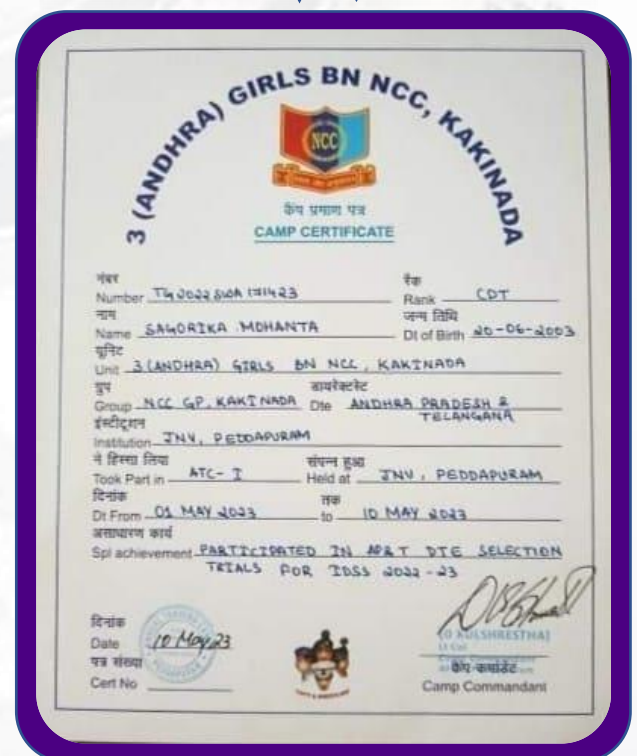 3 (ANDHRA) GIRLS BN NCC, KAKINADA
NCC
कैंप प्रमाण पत्र
CAMP CERTIFICATE
नंबर रैंक
Number Rank CDT
नाम जन्म तिथि
Name SAGORIKA MOHANTA Dt of Birth 20-06-2003
यूनिट
Unit 3 (ANDHRA) GIRLS BN NCC, KAKINADA
ग्रुप डायरेक्टरेट
Group NCC GP, KAKINADA Dte ANDHRA PRADESH &
TELANGANA
इंस्टीट्यूशन
Institution JNV, PEDDAPURAM
ने हिस्सा लिया संपन्न हुआ
Took Part in ATC-I Held at JNV, PEDDAPURAM
दिनांक तक
Dt From 01 MAY 2023 to 10 MAY 2023
असाधारण कार्य
Spl achievement PARTICIPATED IN AP&T DTE SELECTION
TRIALS FOR IDSS 2022-23
दिनांक
Date 10 May 23
(D KULSHRESTHA)
Lt Col
पत्र संख्या कैंप कमांडेंट
Cert No Camp Commandant